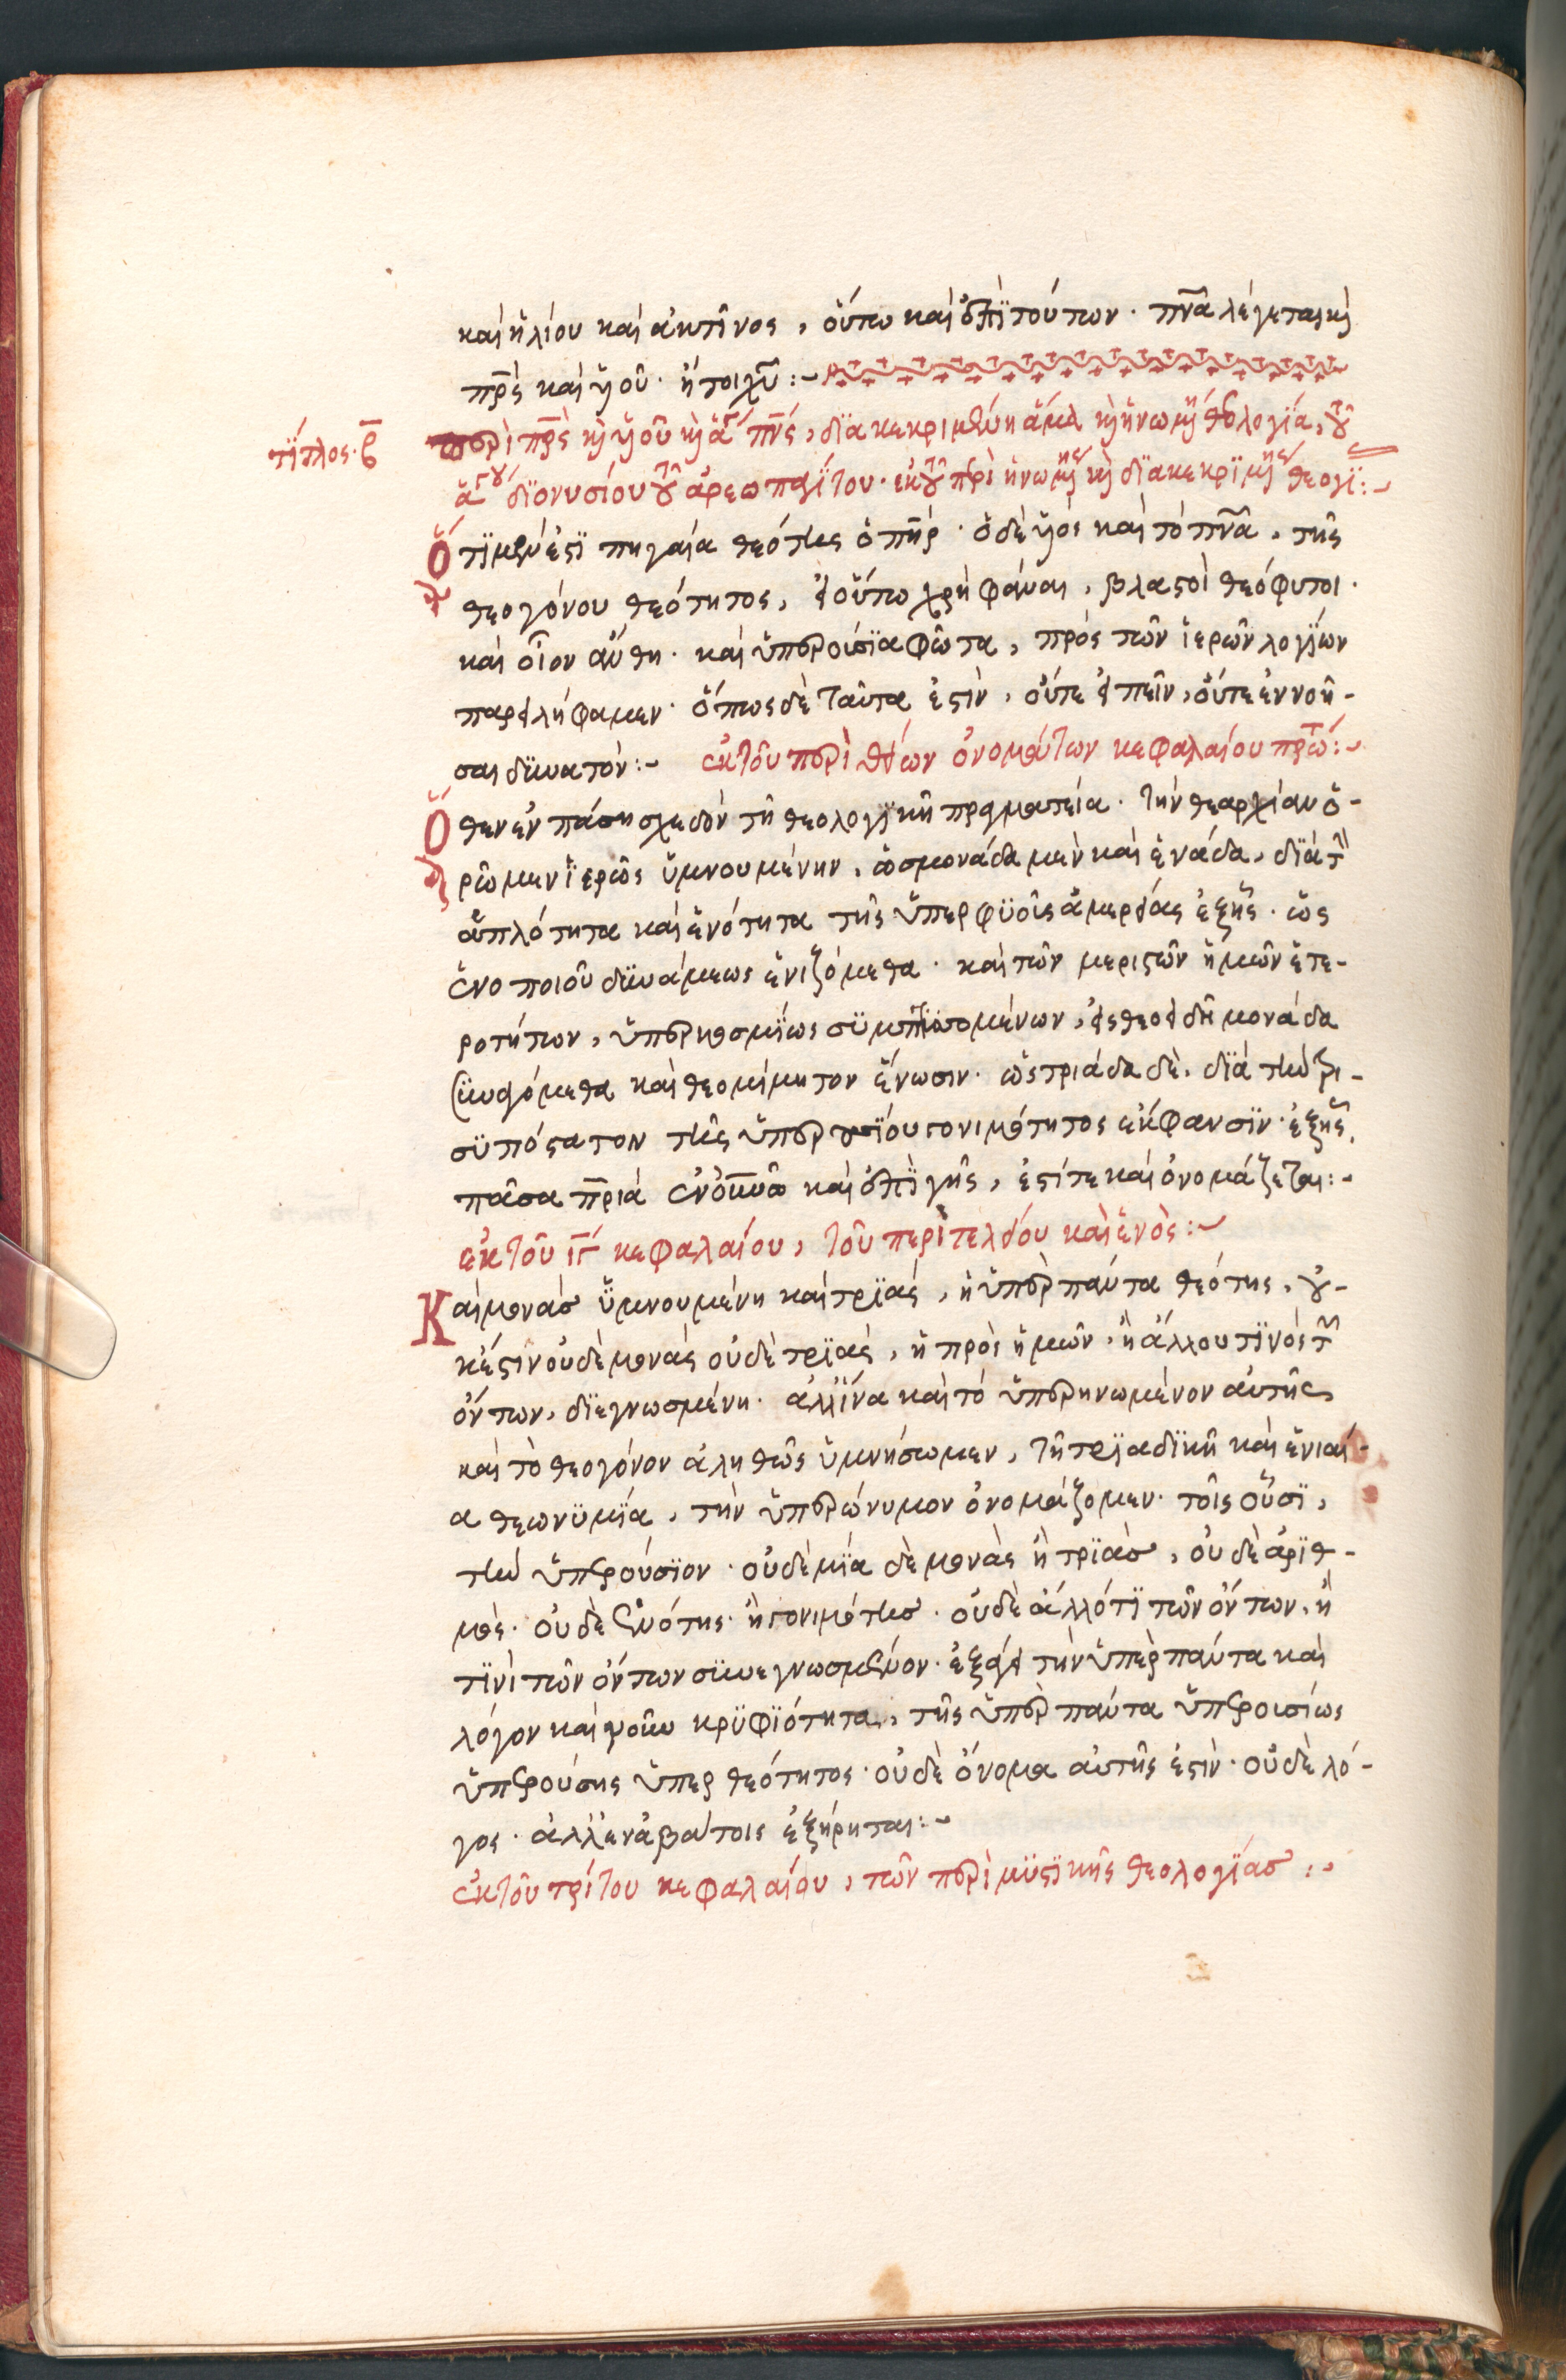 καὶ ἡλίου καὶ ἀκτῖνος, οὕτω καὶ ἐπὶ τούτων· πνα λέγεται κὶ
πρς καὶ ὑοῦ· ἤτοι χυ:~
τίτλος· β
περὶ πρς κὶ ὑοῦ κὶ ἁγ πνς, διακεκριμένη ἅμα κὶ ἡνωμ θεολογία, τοῦ
ἁγου διονυσίου τοῦ ἀρεοπαγίτου· ἐκ τοῦ περὶ ἡνωμης κὶ διακεκριμης θεογι:~
Ὅτι μέν ἐστι πηγαία θεότης ὁ πηρ· ὁ δὲ ὑὸς καὶ τὸ πνα, τῆς
θεογόνου θεότητος, εἰ οὕτω χρὴ φάναι, βλαστοὶ θεόφυτοι·
καὶ οἷον ἄνθη· καὶ ὑπερούσια φῶτα, πρὸς τῶν ἱερῶν λογίων
παρειλήφαμεν· ὅπως δὲ ταῦτα ἐστὶν, οὔτε εἰπεῖν, οὔτε ἐννοῆ-
σαι δυνατόν:~ ἐκ τοῦ περὶ θείων ὀνομάτων κεφαλαίου πρτω:~
Ὅθεν ἐν πάσῃ σχεδὸν τῇ θεολογικῇ πραγματεία· τὴν θεαρχίαν ὁ-
ρῶμεν ἱερῶς ὑμνουμένην, ὡς μονάδα μὲν καὶ ἑνάδα, διὰ τὴν
ἁπλότητα καὶ ἑνότητα τῆς ὑπερφυοῖς ἀμερείας ἐξῆς· ὡς
ἑνοποιοῦ δυνάμεως ἑνιζόμεθα· καὶ τῶν μεριστῶν ἡμῶν ἑτε-
ροτήτων, ὑπερκοσμίως συμπτυσσομένων, εἰς θεοειδῆ μονάδα
συναγόμεθα καὶ θεομίμητον ἕνωσιν· ὡς τριάδα δὲ, διὰ τὴν τρι-
συπόστατον τῆς ὑπερουσίου γονιμότητος ἔκφανσιν· ἐξῆς,
πᾶσα πριὰ ἐν οὐνῶ καὶ ἐπὶ γῆς, ἐστί τε καὶ ὀνομάζεται:~
ἐκ τοῦ ιγ κεφαλαίου, τοῦ περὶ τελείου καὶ ἑνὸς:~
Καὶ μονὰς ὑμνουμένη καὶ τριὰς, ἡ ὑπὲρ πάντα θεότης, οὐ-
κ ἔστιν οὐδὲ μονὰς οὐδὲ τριὰς, ἡ πρὸς ἡμῶν· ἢ ἄλλου τινὸς τῶν
ὄντων, διεγνωσμένη· ἀλλ' ἵνα καὶ τὸ ὑπερηνωμένον αὐτῆς
καὶ τὸ θεογόνον ἀληθῶς ὑμνήσωμεν, τῇ τριαδικῇ καὶ ἑνιαί-
α θεωνυμία, τὴν ὑπερώνυμον ὀνομάζομεν· τοῖς οὖσι,
τὴν ὑπερούσιον· οὐδεμία δὲ μονὰς ἢ τριὰς, οὐδὲ ἀριθ-
μὸς· οὐδὲ ἑνότης· ἢ γονιμότης· οὐδὲ ἄλλό τι τῶν ὄντων· ἤ
τινὶ τῶν ὄντων συνεγνωσμένον· ἐξάγει τὴν ὑπὲρ πάντα καὶ
λόγον καὶ νοῦν κρυφιότητα, τῆς ὑπὲρ πάντα ὑπερουσίως
ὑπερούσης ὑπερ θεότητος· οὐδὲ ὄνομα αὐτῆς ἐστὶν· οὐδὲ λό-
γος· ἀλλ' ἐν ἀβάτοις ἐξῄρηται:~
ἐκ τοῦ τρίτου κεφαλαίου, τῶν περὶ μυστικῆς θεολογίας:~